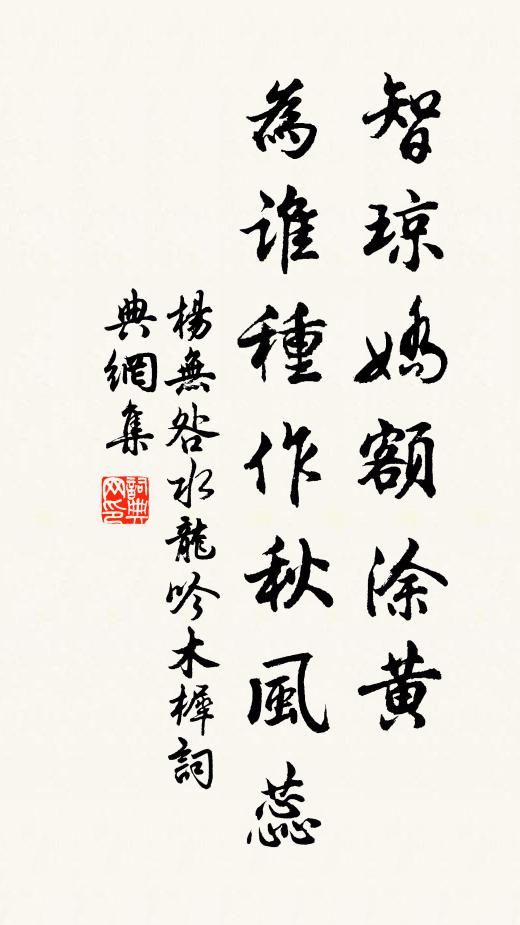 智琼嬌額涂黄
為誰種作秋風蕊
楊無咎水龍吟木樨詞
典網集
詞典网印